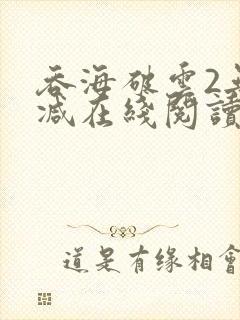 吞海破雲2無
減在綫閱讀
道是有缘相會